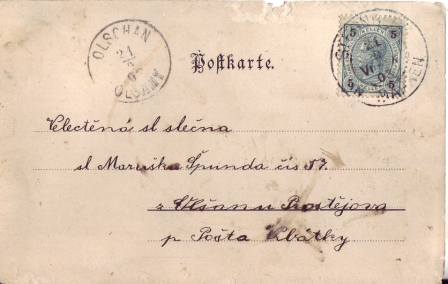 OLSCHAN
OLŠANY
Postkarte.
5 5
Velectěná sl slečna
sl Maruška Špunda čís 57.
z Olšan u Prostějova
p. Pošta Lbátky